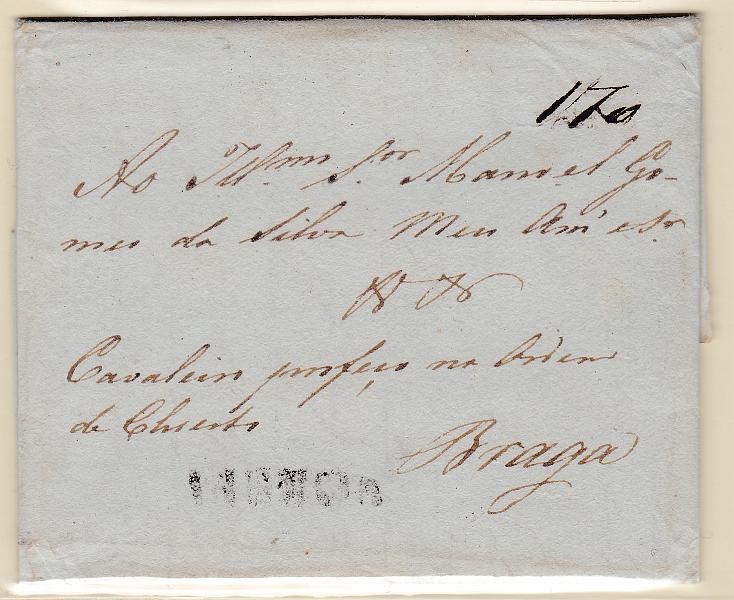 170
Ao Illmo Sor Manoel Go-
mes da Silva Meu Amo e Sr
Cavaleiro profeço na Ordem
de Christo
Braga